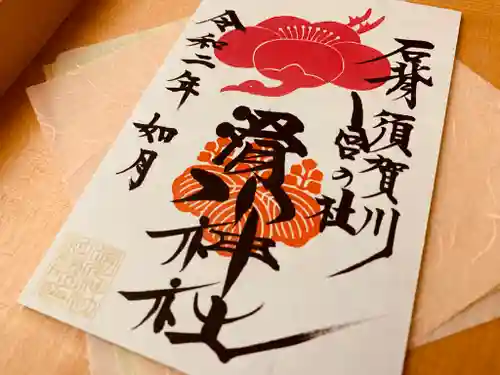 石背 須賀川
宮の社
滑川神社
令和二年 如月